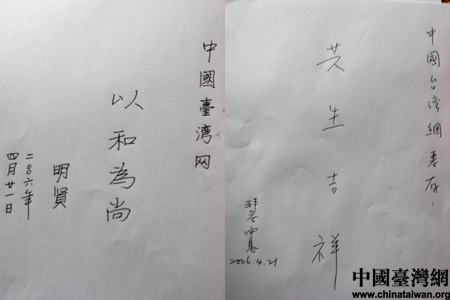 中國臺湾网
以和為尚
明賢
二〇〇六年
四月廿一日
中國台湾網惠存：
共生吉祥
2006.4.21
中國臺灣網
www.chinataiwan.org